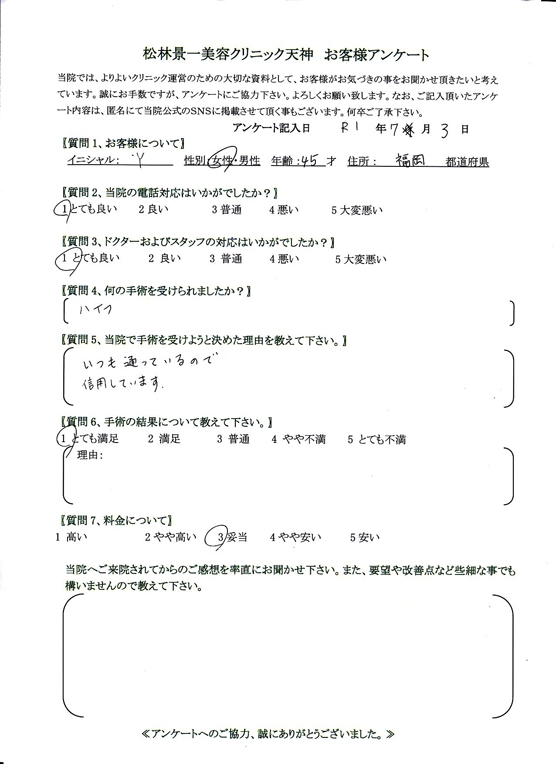 松林景一美容クリニック天神　お客様アンケート
当院では、よりよいクリニック運営のための大切な資料として、お客様がお気づきの事をお聞かせ頂きたいと考え
ています。誠にお手数ですが、アンケートにご協力下さい。よろしくお願い致します。なお、ご記入頂いたアンケ
ート内容は、匿名にて当院公式のSNSに掲載させて頂く事もございます。何卒ご了承下さい。
アンケート記入日　R1　年7月3日
〖質問1、お客様について〗
イニシャル：Y　性別：女性・男性　年齢：45才　住所：福岡　都道府県
〖質問2、当院の電話対応はいかがでしたか？〗
1とても良い　2良い　3普通　4悪い　5大変悪い
〖質問3、ドクターおよびスタッフの対応はいかがでしたか？〗
1とても良い　2良い　3普通　4悪い　5大変悪い
〖質問4、何の手術を受けられましたか？〗
ハイフ
〖質問5、当院で手術を受けようと決めた理由を教えて下さい。〗
いつも通っているので
信用しています.
〖質問6、手術の結果について教えて下さい。〗
1とても満足　2満足　3普通　4やや不満　5とても不満
理由：
〖質問7、料金について〗
1高い　2やや高い　3妥当　4やや安い　5安い
当院へご来院されてからのご感想を率直にお聞かせ下さい。また、要望や改善点など些細な事でも
構いませんので教えて下さい。
≪アンケートへのご協力、誠にありがとうございました。≫